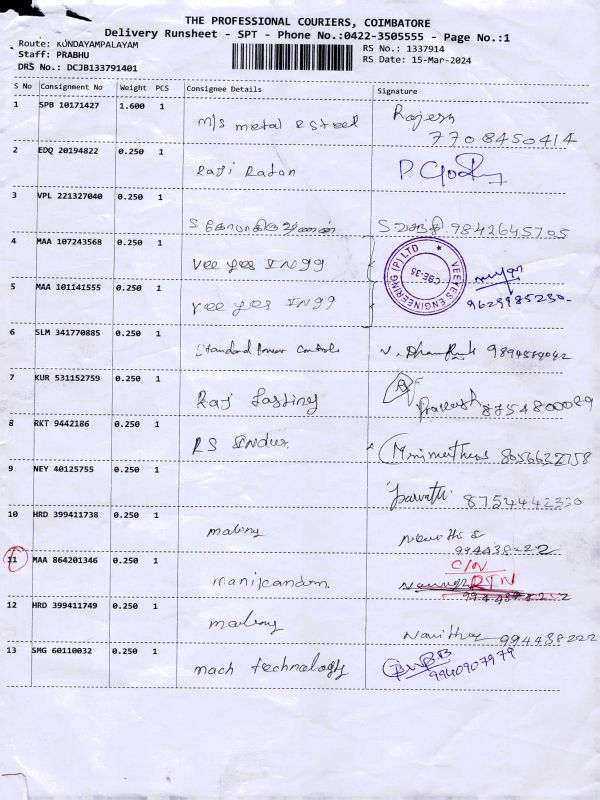 THE PROFESSIONAL COURIERS, COIMBATORE
Delivery Runsheet - SPT - Phone No.:0422-3505555 - Page No.:1
Route: KUNDAYAMPALAYAM
RS No.: 1337914
Staff: PRABHU
RS Date: 15-Mar-2024
DRS No.: DCJB133791401
S No Consignment No Weight PCS Consignee Details Signature
1 SPB 10171427 1.600 1 M/s metal & steel Rajesh
7708450414
2 EDQ 20194822 0.250 1 Raji Ratan
3 VPL 221327040 0.250 1 9842645705
4 MAA 107243568 0.250 1 Vee yes INgg
VEE YES ENGINEERING (P) LTD
CBE-35
5 MAA 101141555 0.250 1 Vee yes INgg 9629985230
6 SLM 341770885 0.250 1 Standard Power Controls
7 KUR 531152759 0.250 1 Raj Prakash 8754800089
8 RKT 9442186 0.250 1 RS 8056622758
9 NEY 40125755 0.250 1 8754442330
10 HRD 399411738 0.250 1
994438222
11 MAA 864201346 0.250 1 manikandan C/N
RTN
994438222
12 HRD 399411749 0.250 1 Navitha 994438222
13 SMG 60110032 0.250 1 mach technology 9940907979